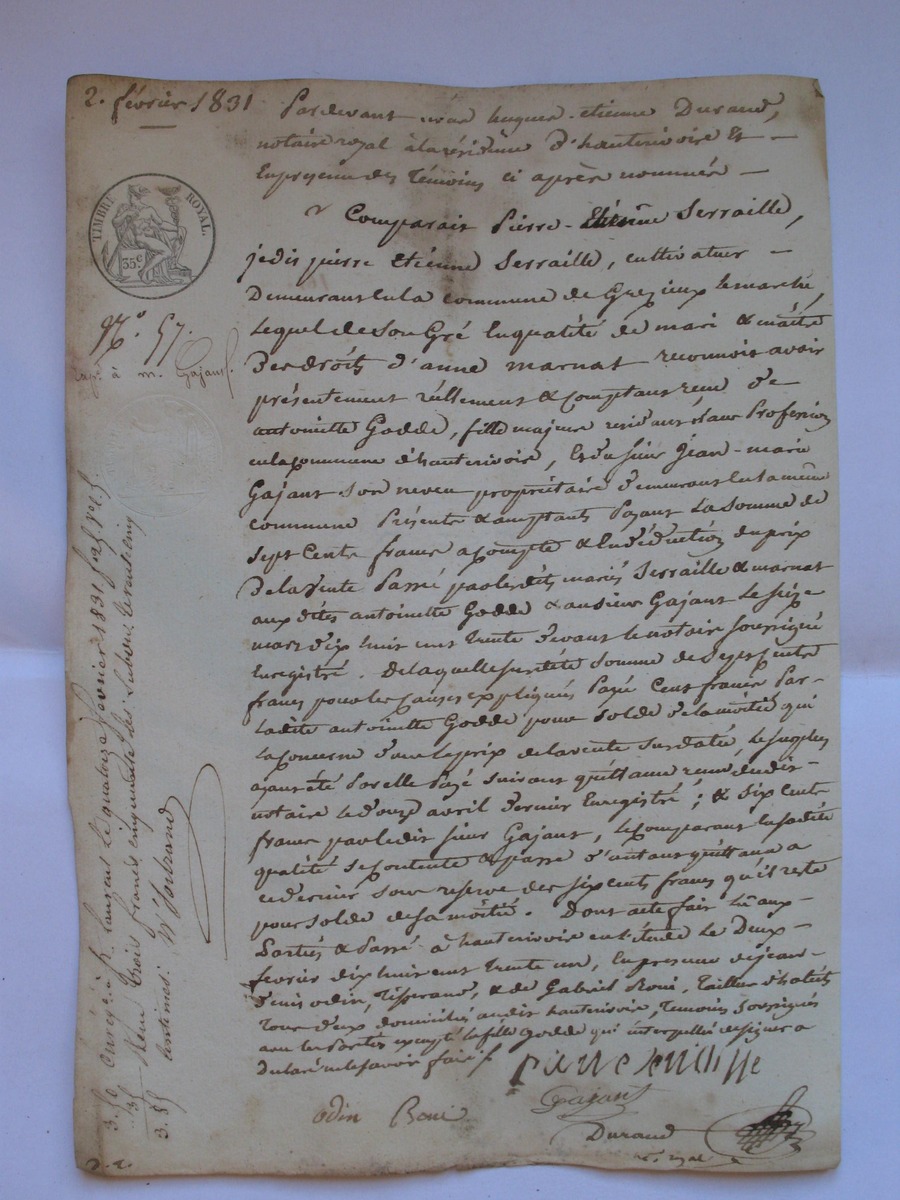 2. février 1831
Pardevant nous hugues-etienne Durand,
notaire royal à la résidence d'hauterivoire Et
En presence des témoins ci après nommés
Comparait Pierre Etienne Serraille,
je dis pierre Etienne Serraille, cultivateur
Demeurant en la commune de Grezieux le marché,
Lequel de Son Gré En qualité de mari & maitre
Des droits d'anne marnat reconnois avoir
présentement réellement & comptant reçu d'e
antoinette Godde, fille majeure residant sans Profession
en la commune d'hauterivoire, & du Sieur Jean-marie
Gajant son neveu propriétaire demeurant en la même
commune Présents & acceptants Payant La Somme de
Sept Cents francs a compte & En Déduction du prix
De la Vente Passé par les dits mariés Serraille & marnat
aux dites antoinette Godde & au sieur Gajant Le Seize
mars dix huit cent trente devant le notaire Soussigné
Enregistré. De laquelle susdite Somme de Sept Cents
francs pour les causes expliqués Payé Cent francs Par
Ladite antoinette Godde pour solde de la moitié qui
La Concerne dans le prix de la vente Susdatée, Le Surplus
ayant été Par elle Payé suivant quittance reçue dudit
notaire Le douze avril dernier Enregistré; & Six Cents
francs par le dit sieur Gajant, Le Comparant en sadite
qualité se contente & passe d'autant quittance a
ce dernier sous reserve des six cents francs qu'il reste
pour solde de sa moitié. Dont acte fait Lû aux
Parties & Passé à hauterivoire en l'étude Le Deux
fevrier dix huit cent trente un, En presence de jean
denis odin, tisserand, & de Gabriel Roni, tailleur d'habits
tous deux domiciliés audit hauterivoire, temoins soussignés
avec les Parties excepté la fille Godde qui interpellée de signer a
Declaré ne le savoir faire
odin Roni
Gajant
Durand
n. royal
TIMBRE ROYAL.
35 c.
N.° 57.
Gajant
Enregé à St Laurent le quatorze fevrier 1831
Reçu trois francs cinquante
centimes.
3.50
35
3.85